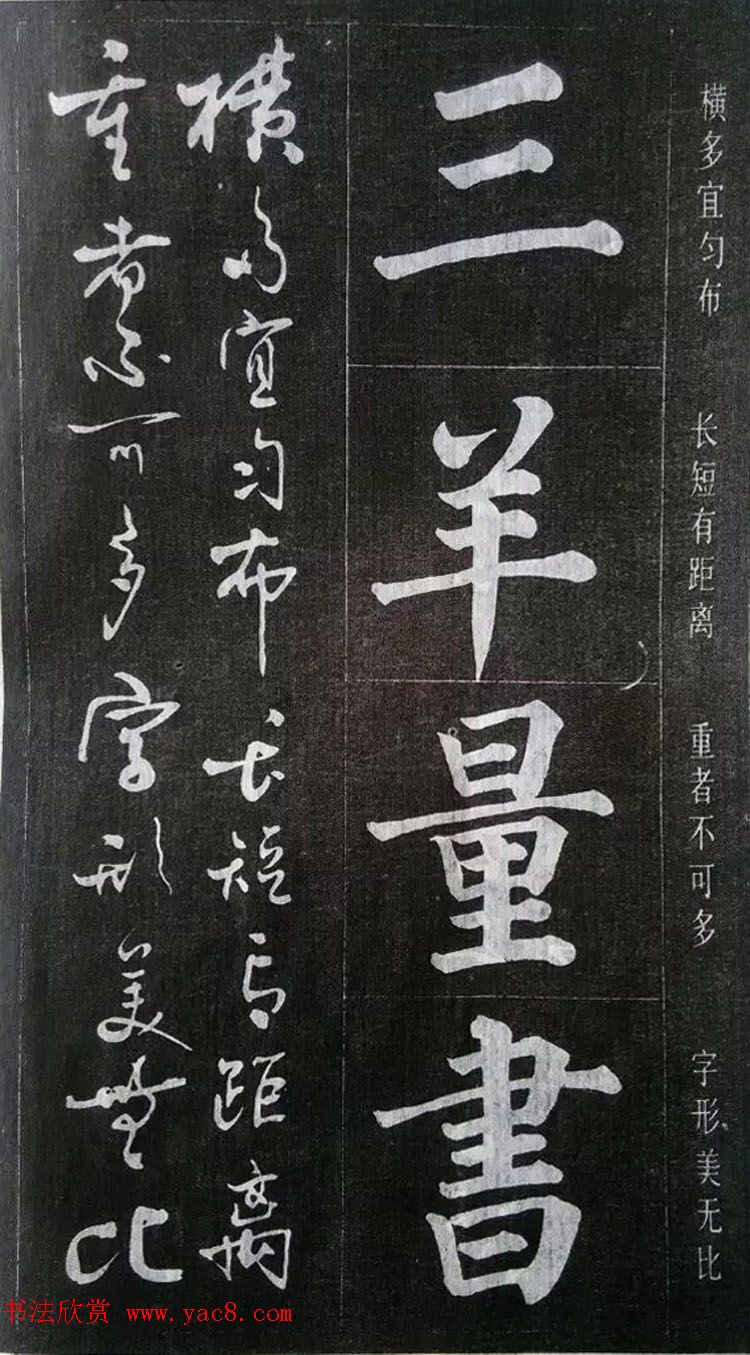 横多宜匀布 长短有距离 重者不可多 字形美无比
三羊量書
横多宜匀布长短有距离
重者不可多字形美無比
书法欣赏 www.yac8.com